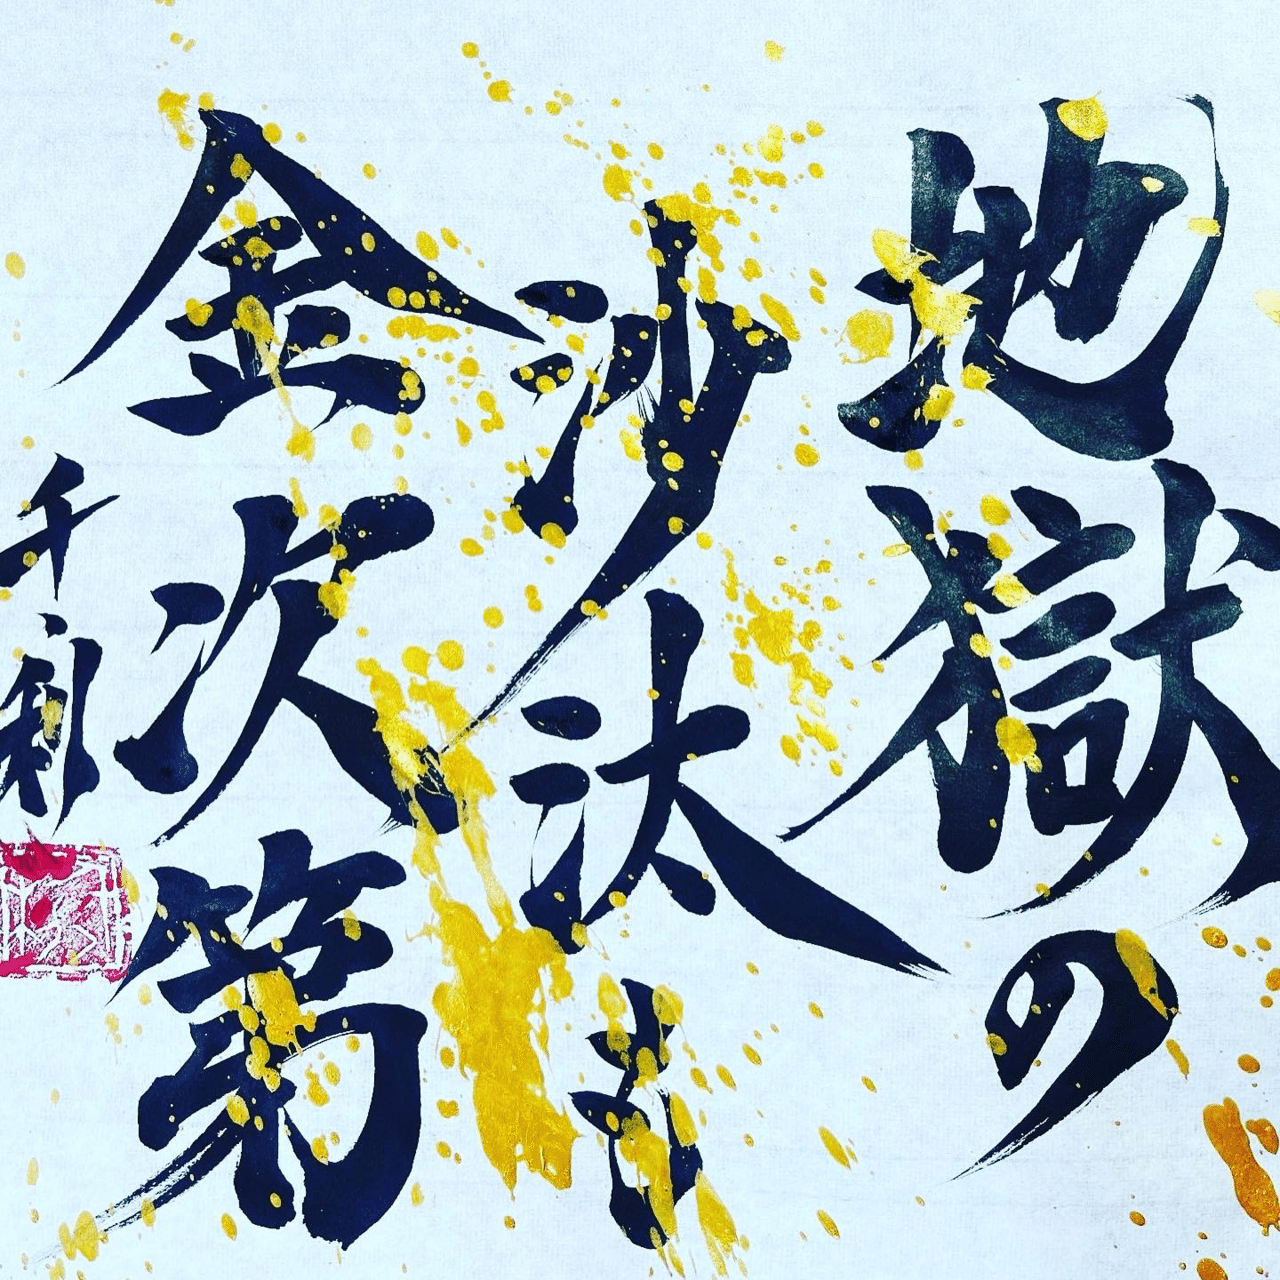 地獄の
沙汰も
金次第
千利